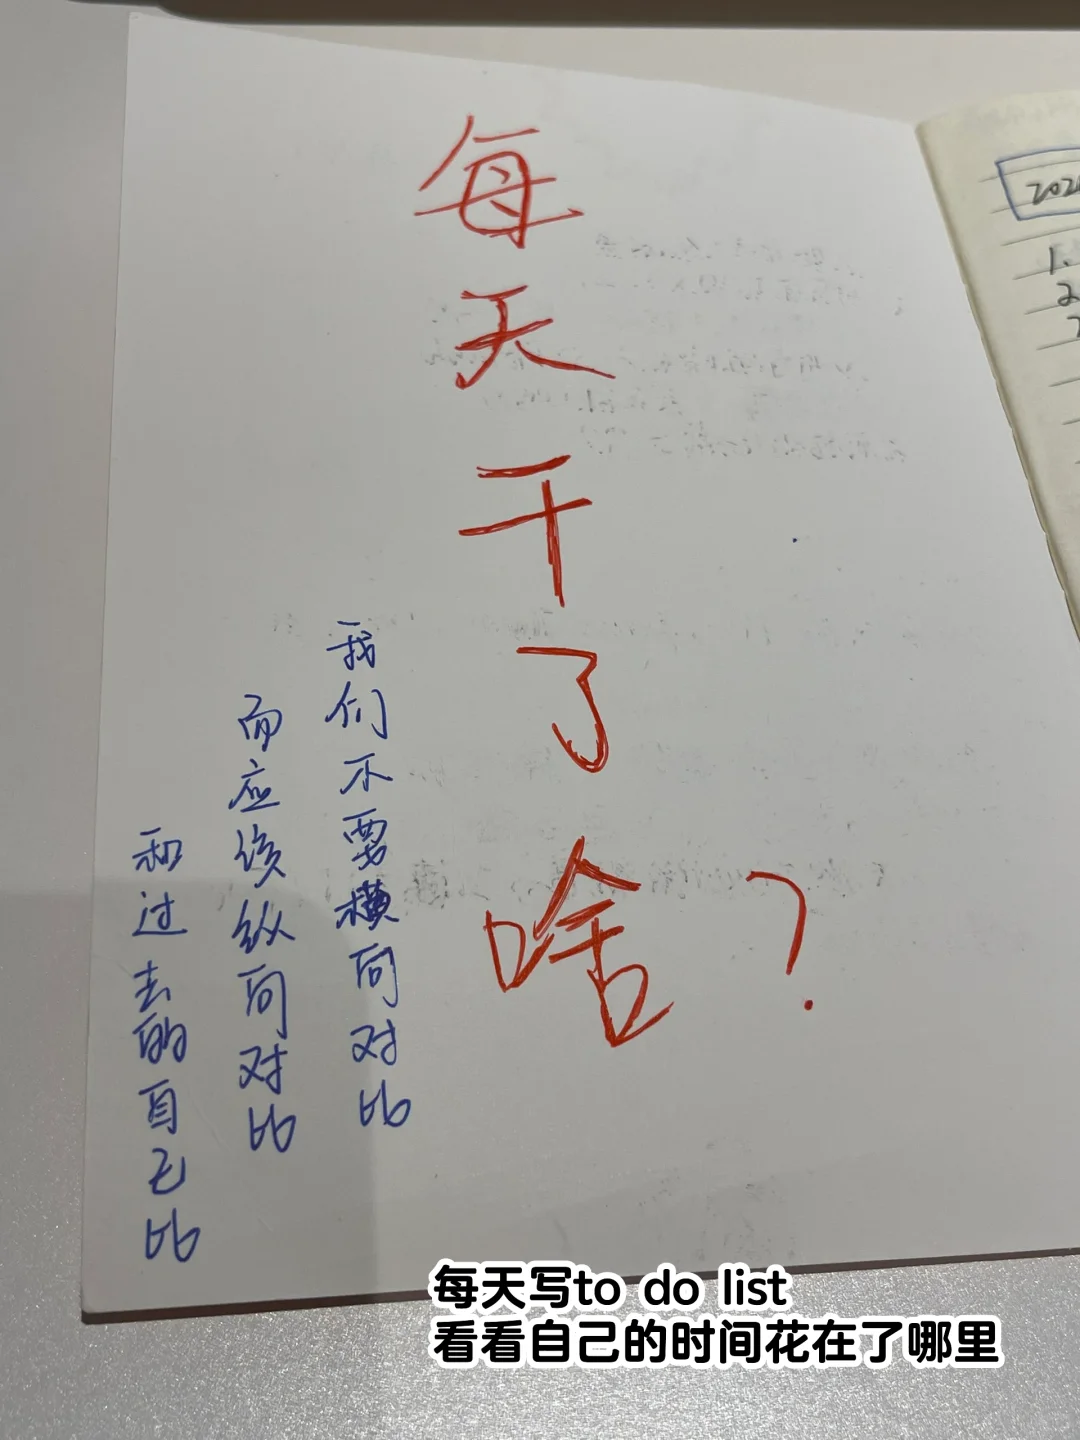 每天干了啥?
我们不要横向对比
而应该纵向对比
和过去的自己比
1.
2
每天写to do list
看看自己的时间花在了哪里